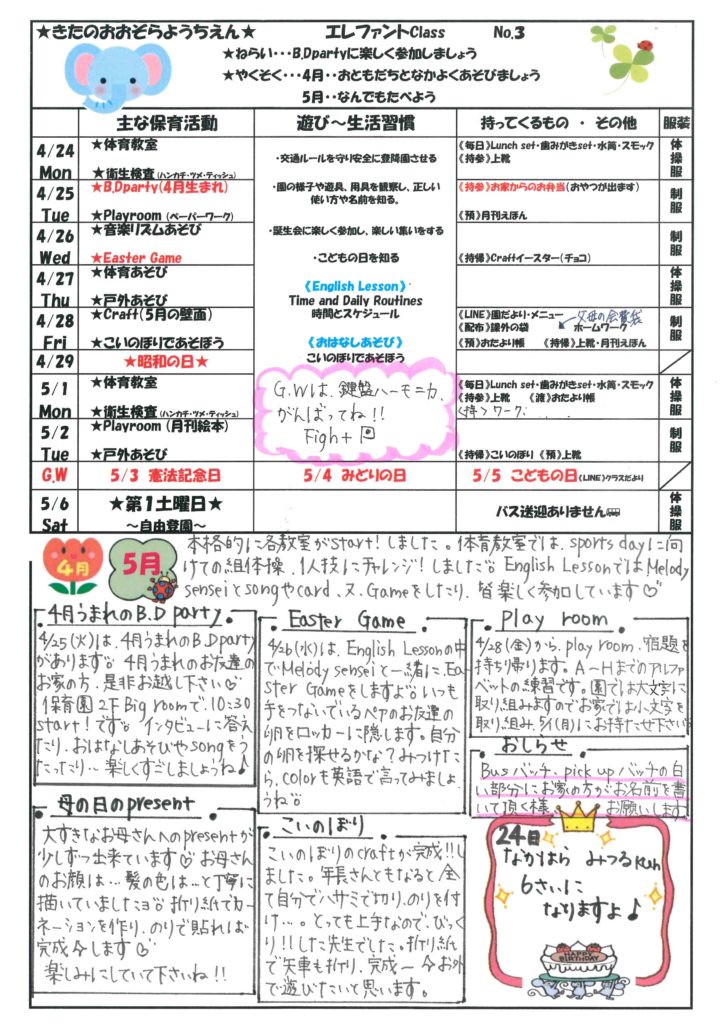 ★きたのおおぞらようちえん★ エレファントClass No.3
★ねらい・・・B.Dpartyに楽しく参加しましょう
★やくそく・・・4月・・おともだちとなかよくあそびましょう
5月・・なんでもたべよう
主な保育活動 遊び～生活習慣 持ってくるもの ・ その他 服装
4/24 Mon
★体育教室
★衛生検査(ハンカチ・ツメ・ティッシュ)
・交通ルールを守り安全に登降園させる
《毎日》Lunch set・歯みがきset・水筒・スモック
《持参》上靴
体操服
4/25 Tue
★B.Dparty(4月生まれ)
★Playroom (ペーパーワーク)
・園の様子や遊具、用具を観察し、正しい
使い方や名前を知る。
《持参》お家からのお弁当(おやつが出ます)
《預》月刊えほん
制服
4/26 Wed
★音楽リズムあそび
★Easter Game
・誕生会に楽しく参加し、楽しい集いをする
・こどもの日を知る
《持帰》Craftイースター(チョコ)
制服
4/27 Thu
★体育あそび
★戸外あそび
《English Lesson》
Time and Daily Routines
時間とスケジュール
体操服
4/28 Fri
★Craft(5月の壁面)
★こいのぼりであそぼう
《おはなしあそび》
こいのぼりであそぼう
《LINE》園だより・メニュー
父母の会費袋
《配布》課外の袋 ホームワーク
《預》おたより帳 《持帰》上靴・月刊えほん
制服
4/29
★昭和の日★
5/1 Mon
★体育教室
★衛生検査(ハンカチ・ツメ・ティッシュ)
G.Wは、鍵盤ハーモニカ、
がんばってね!!
Figh+
《毎日》Lunch set・歯みがきset・水筒・スモック
《持参》上靴 《渡》おたより帳
<持>ワーク、
体操服
5/2 Tue
★Playroom (月刊絵本)
★戸外あそび
《持帰》こいのぼり 《預》上靴
制服
G.W 5/3 憲法記念日 5/4 みどりの日 5/5 こどもの日《LINE》クラスだより
5/6 Sat
★第1土曜日★
～自由登園～
バス送迎ありません
体操服
4月 5月
本格的に各教室がstart!しました。体育教室では、sports dayに向
けての組体操、1人技にチャレンジ!しました♡ English LessonではMelody
senseiとsongやcard、又、Gameをしたり、皆楽しく参加しています♡
4月うまれのB.D party
4/25(火)は、4月うまれのB.Dparty
があります♡ 4月うまれのお友達の
お家の方、是非お越し下さい♡
保育園2F Big roomで、10:30
start!です♡ インタビューに答え
たり、おはなしあそびやsongをう
たったり…楽しくすごしましょうね♪
Easter Game
4/26(水)は、English Lessonの中
でMelody senseiと一緒に、Ea
ster Gameをしますよ♡いつも
手をつないでいるペアのお友達の
卵をロッカーに隠します。自分
の卵を探せるかな?みつけた
ら、colorも英語で言ってみましょ
うね♡
Play room
4/28(金)から、play room、宿題を
持ち帰ります。A～Hまでのアルファ
ベットの練習です。園では大文字に
取り組みますのでお家では小文字を
取り組み、5/1(月)にお持たせ下さい♡
おしらせ
Busバッチ、pick upバッチの白
い部分にお家の方がお名前を書
いて頂く様、お願いします
母の日のpresent
大すきなお母さんへのpresentが
少しずつ出来ています♡お母さん
のお顔は…髪の色は…と丁寧に
描いていましたヨ♡折り紙でカー
ネーションを作り、のりで貼れば
完成今します♡
楽しみにしていて下さいね!!
こいのぼり
こいのぼりのcraftが完成!!し
ました。年長さんともなると全
て自分でハサミで切り、のりを付
け…。とっても上手なので、びっく
り!!した先生でした。折り紙
で矢車も折り、完成～今お外
で遊びたいと思います。
24日
なかはら みつるkun
6さいに
なりますよ♪
HAPPY
BIRTHDAY